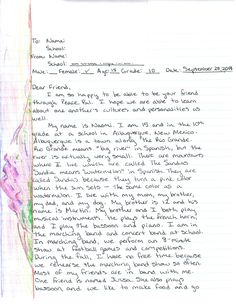 To: Name:
School:
From: Name:
School:
Male: Female: ✓ Age: 15 Grade: 10 Date: September 20, 2014
Dear Friend,
I am so happy to be able to be your friend
through Peace Pal. I hope we are able to learn
about one another's cultures and personalities as
well.
My name is Naomi. I am 15 and in the 10th
grade at a school in Albuquerque, New Mexico.
Albuquerque is a town along "the Rio Grande."
Rio Grande means "big river" in Spanish, but the
river is actually very small. There are mountains
where I live which are called The Sandias.
Sandia means "watermelon" in Spanish. They are
called Sandias because they turn a pink color
when the sun sets - the same color as a
watermelon. I live with my mom, my brother,
my dad, and my dog. My brother is 12 and his
name is Martin. My brother and I both play
musical instruments. He plays the french horn
and I play the bassoon and piano. I am in
the marching band and concert band at School.
In marching band, we perform an 8-minute
show at football games and competitions.
During the fall, I have no free time because
we rehearse the marching band show so often.
Most of my friends are in band with me.
One friend is named Julisa. She also plays
bassoon and we like to make food and go